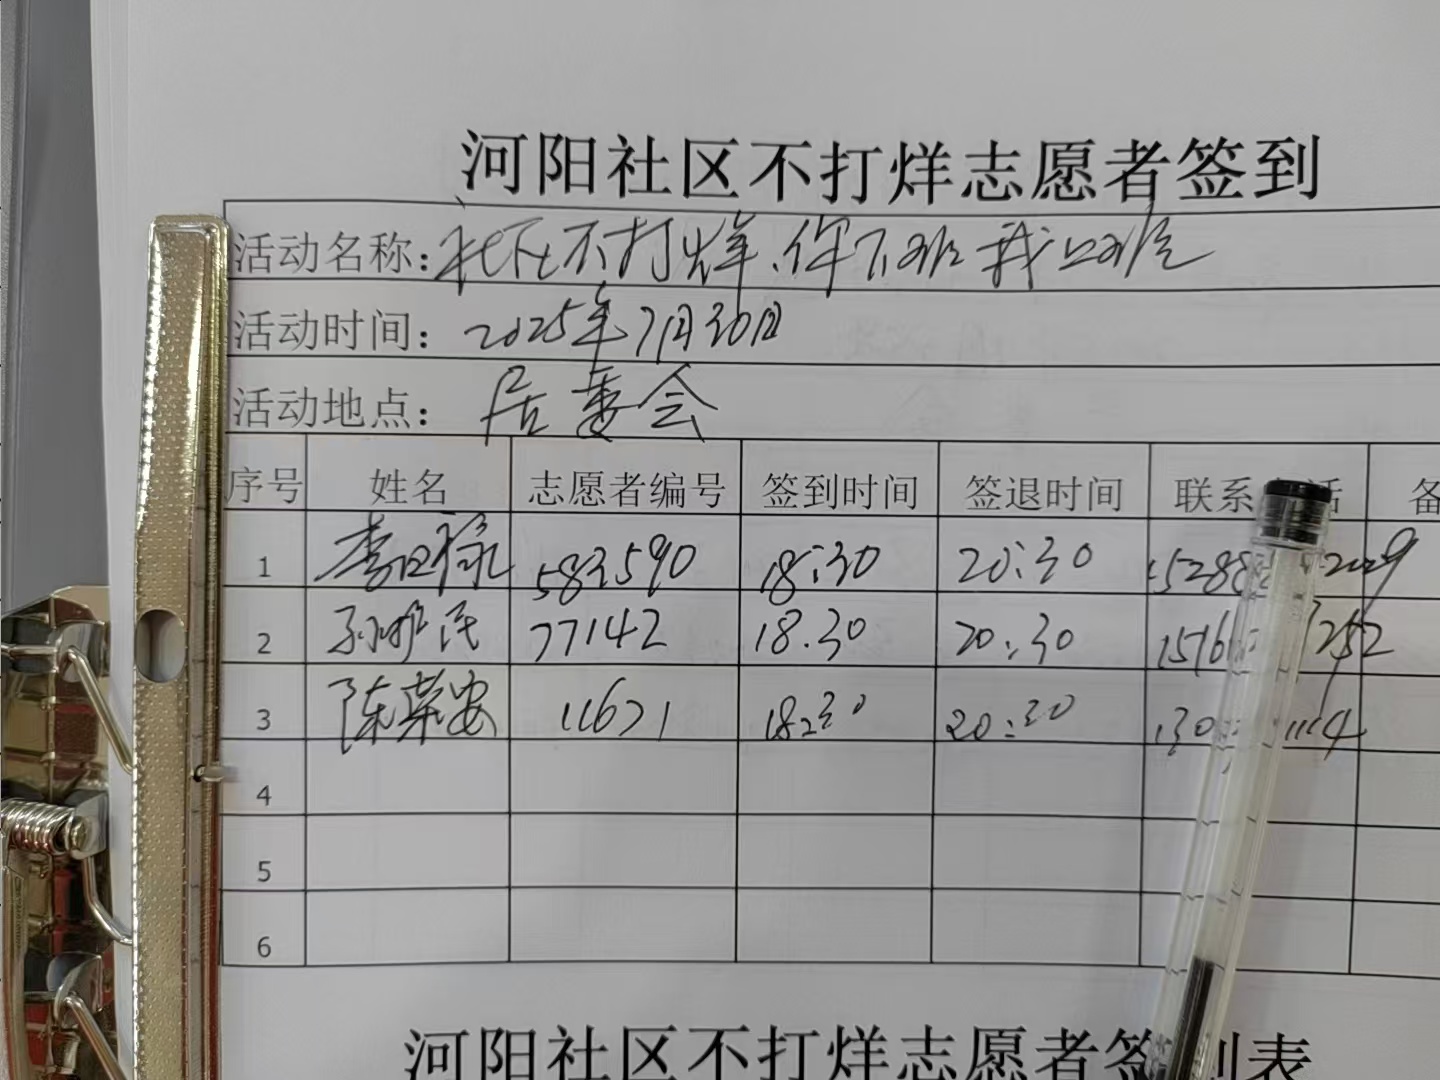 河阳社区不打烊志愿者签到
活动名称：社区不打烊、你下班我上班
活动时间：2025年7月30日
活动地点：居委会
序号 姓名 志愿者编号 签到时间 签退时间 联系 话 备
1 李 583590 18:30 20:30 15288 2009
2 孙 民 77142 18.30 20:30 1516 252
3 陈荣安 11671 18:30 20:30 130 1114
4
5
6
河阳社区不打烊志愿者签到表